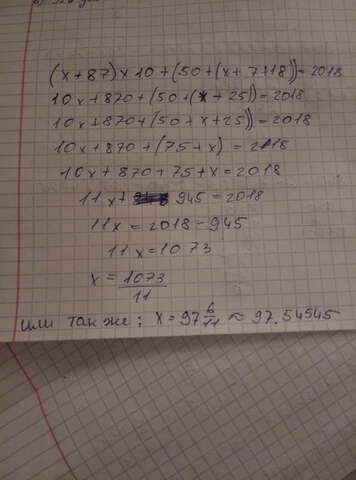 (x+87)×10+(50+(x+7+18))=2018
10x+870+(50+(x+25))=2018
10x+870+(50+x+25))=2018
10x+870+(75+x)=2018
10x+870+75+x=2018
11x+945=2018
11x=2018-945
11x=1073
x=1073/11
или также: x=97 6/11≈97.54545